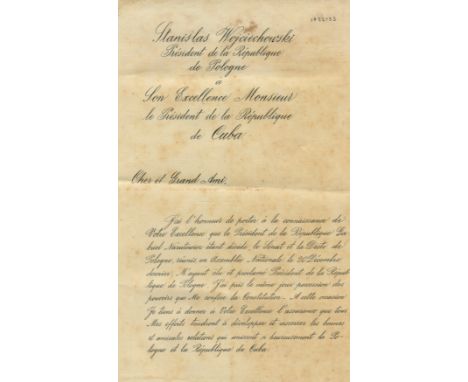 Stanislas Wojciechowski
Président de la République
de Pologne
à
Son Excellence Monsieur
le Président de la République
de Cuba
Cher et Grand Ami,
J'ai l'honneur de porter à la connaissance de
Votre Excellence que le Président de la République Ga-
briel Narutowicz étant décédé, le Sénat et la Diète de
Pologne, réunis en Assemblée Nationale le 20 Décembre
dernier, M'ayant élu et proclamé Président de la Répub-
lique de Pologne J'ai pris le même jour possession des
pouvoirs que Me confère la Constitution. A cette occasion
Je tiens à donner à Votre Excellence l'assurance que tous
Mes efforts tendront à développer et resserrer les bonnes
et amicales relations qui unissent si heureusement la Po-
logne et la République de Cuba.